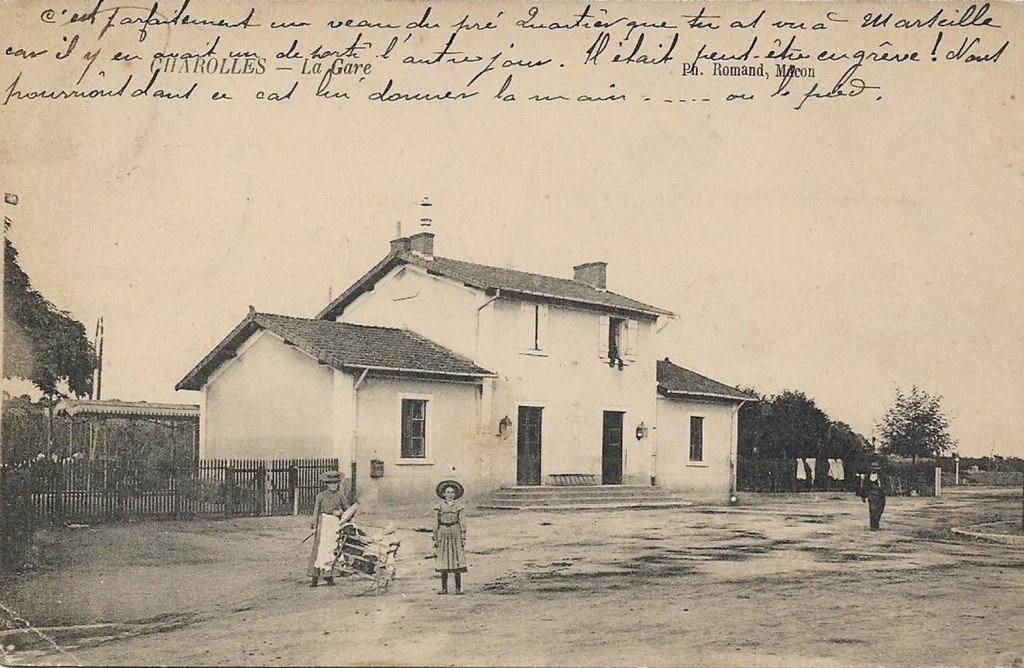 C'est parfaitement un veau du pré Quartier que tu as vu à Marseille
car il y en avait un de porté l'autre jour. Il était peut-être en grève ! Nous
CHAROLLES — La Gare
Ph. Romand, Mâcon
pourrions dans ce cas lui donner la main ..... ou le pied.